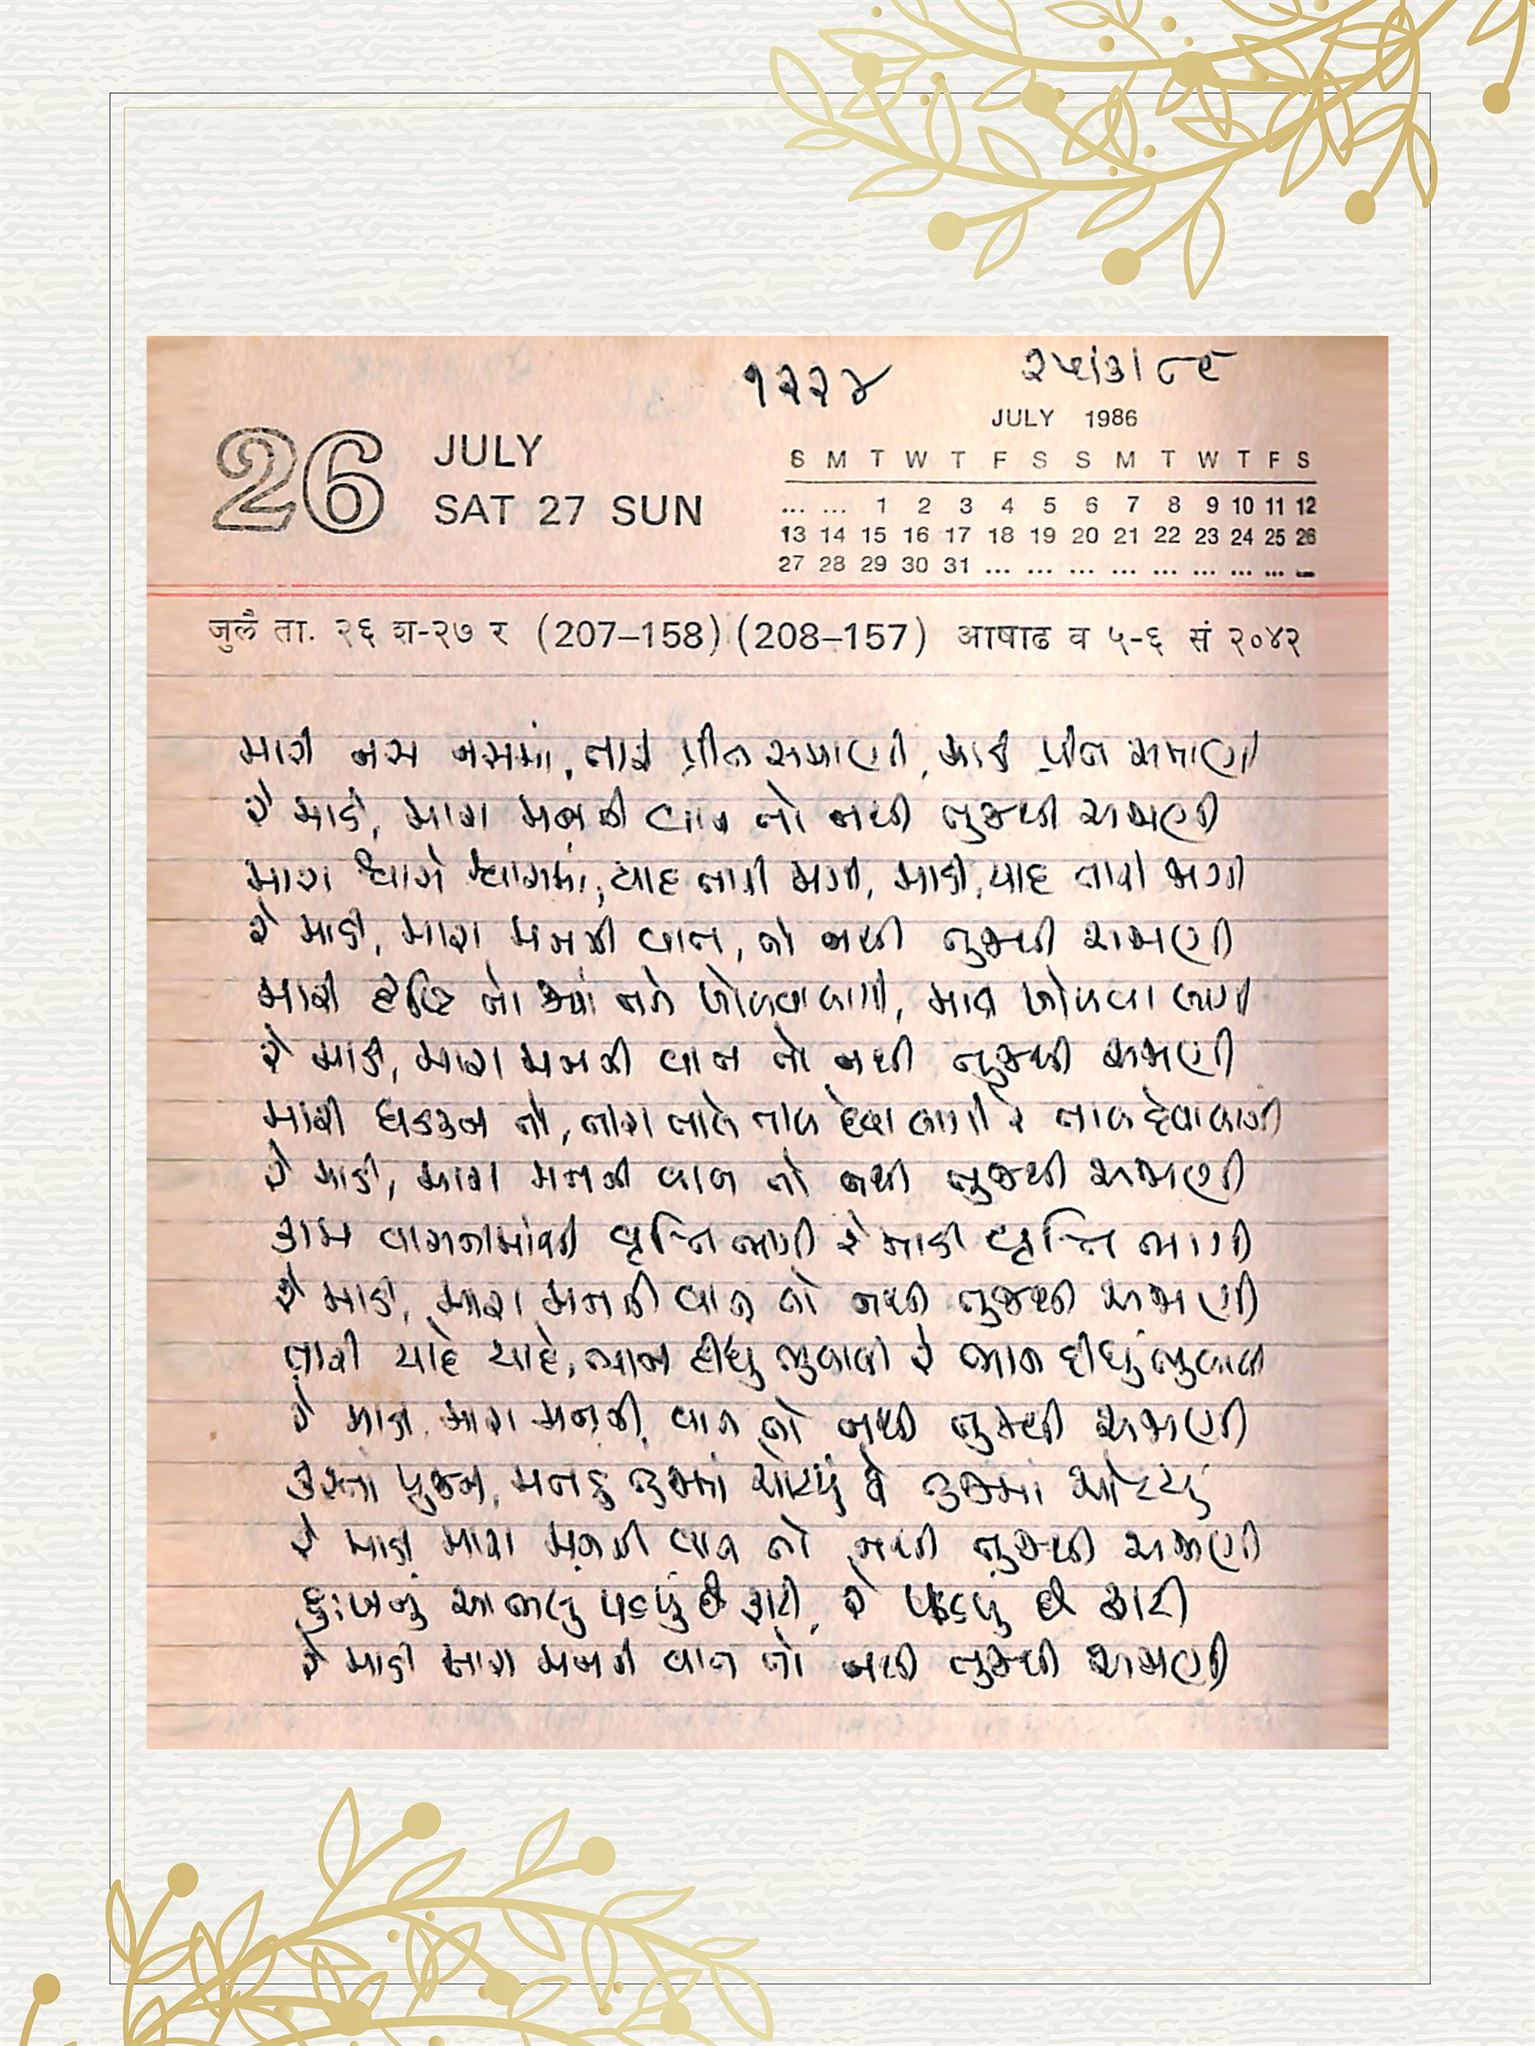 ૧૨૨૪ ૨૫|૩|૮૯
JULY 1986
26 JULY
SAT 27 SUN
S M T W T F S S M T W T F S
... ... 1 2 3 4 5 6 7 8 9 10 11 12
13 14 15 16 17 18 19 20 21 22 23 24 25 26
27 28 29 30 31 ... ... ... ... ... ... ... ... ...
जुलै ता. २६ श-२७ र (207–158) (208–157) आषाढ व ५-६ सं २०४२
મારી નસ નસમાં, તારી પ્રીત સમાણી, માડી પ્રીત સમાણી
રે માડી, મારા મનની વાત તો નથી તુજથી અજાણી
મારા શ્વાસે શ્વાસમાં, યાદ તારી ભળી, માડી, યાદ તારી ભળી
રે માડી, મારા મનની વાત, તો નથી તુજથી અજાણી
મારી દૃષ્ટિ તો જ્યાં તને ખોળવા લાગી, માડી ખોળવા લાગી
રે માડી, મારા મનની વાત તો નથી તુજથી અજાણી
મારી ધડકન તો, તારા તાલે તાલ દેવા લાગી રે તાલ દેવા લાગી
રે માડી, મારા મનની વાત તો નથી તુજથી અજાણી
કામ વાસનામાંથી વૃત્તિ ભાગી રે માડી વૃત્તિ ભાગી
રે માડી, મારા મનની વાત તો નથી તુજથી અજાણી
તારી યાદે યાદે, ભાન દીધું ભુલાવી રે ભાન દીધું ભુલાવી
રે માડી મારા મનની વાત તો નથી તુજથી અજાણી
કરતા પૂજન, મનડું તુજમાં ચોંટ્યું રે તુજમાં ચોંટ્યું
રે માડી મારા મનની વાત તો નથી તુજથી અજાણી
દુઃખનું આભલું પડ્યું છે ફાટી, રે પડ્યું છે ફાટી
રે માડી મારા મનની વાત તો નથી તુજથી અજાણી